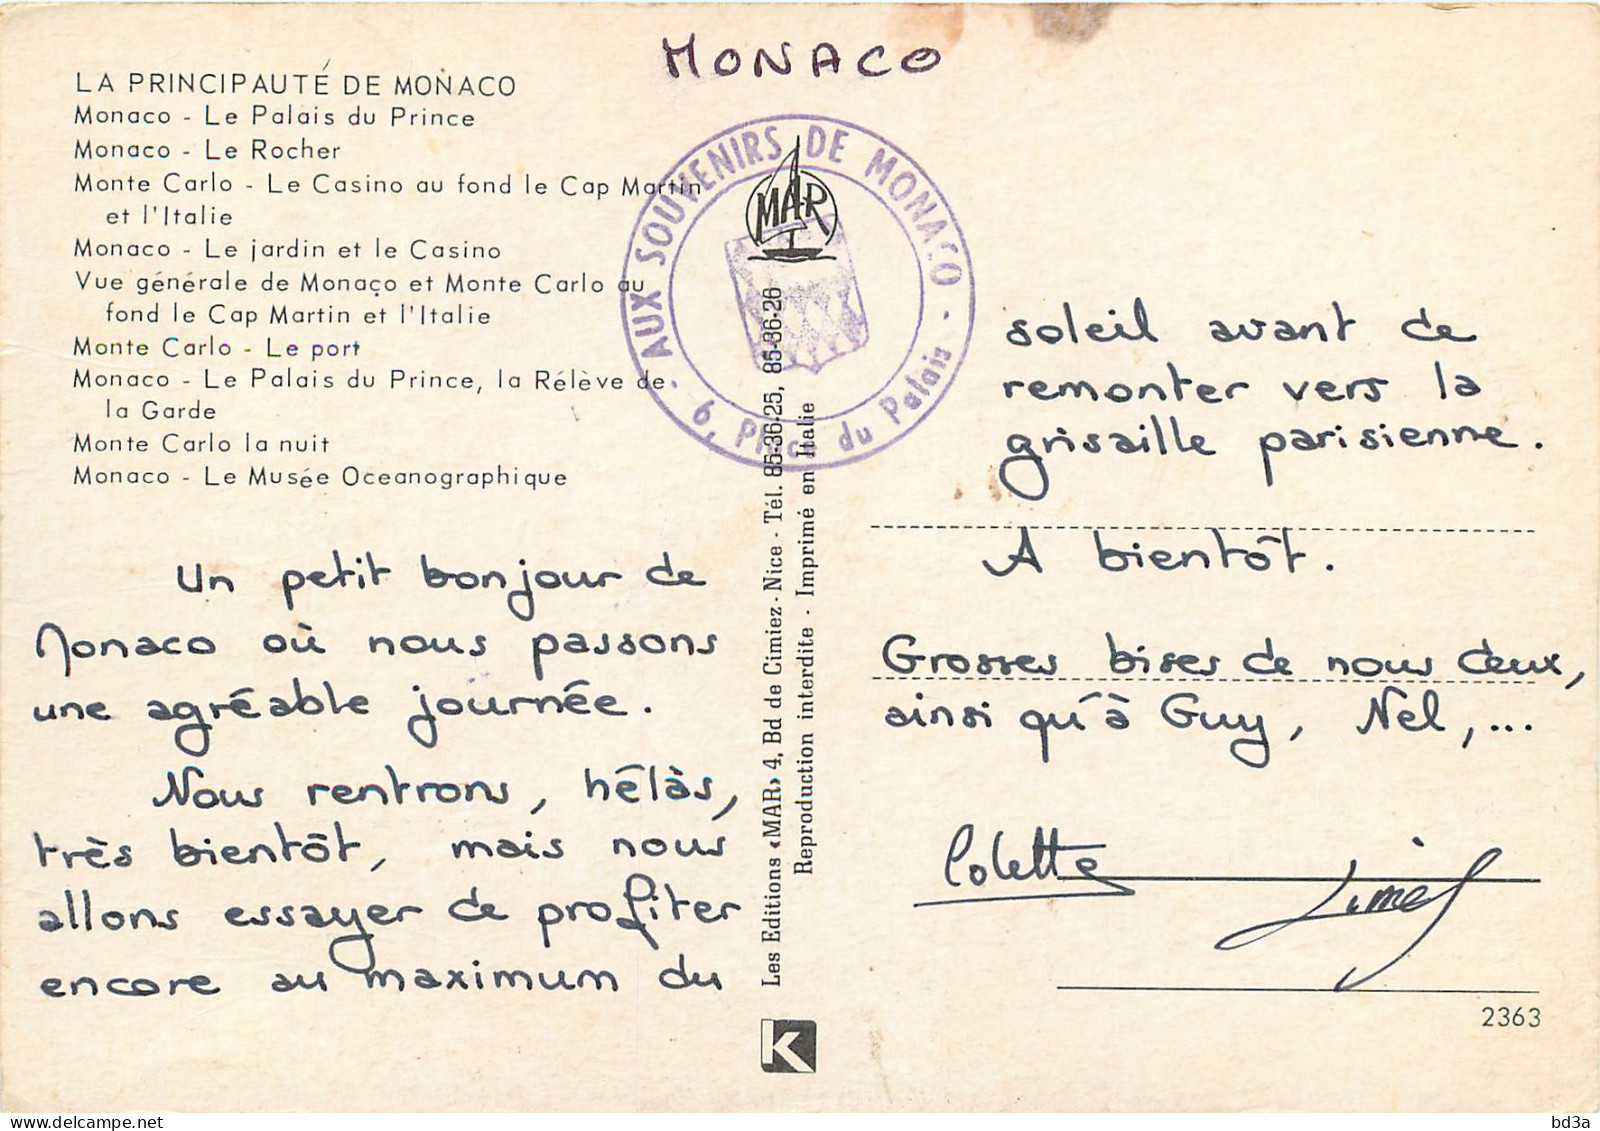 MONACO
LA PRINCIPAUTÉ DE MONACO
Monaco - Le Palais du Prince
Monaco - Le Rocher
Monte Carlo - Le Casino au fond le Cap Martin
et l'Italie
Monaco - Le jardin et le Casino
Vue générale de Monaco et Monte Carlo au
fond le Cap Martin et l'Italie
Monte Carlo - Le port
Monaco - Le Palais du Prince, la Rélève de
la Garde
Monte Carlo la nuit
Monaco - Le Musée Oceanographique
AUX SOUVENIRS DE MONACO
6, Place du Palais
MAR
Un petit bonjour de
Monaco où nous passons
une agréable journée.
Nous rentrons, hélàs,
très bientôt, mais nous
allons essayer de profiter
encore au maximum du
Les Editions «MAR» 4, Bd de Cimiez - Nice - Tél. 85-36-25, 85-36-26
Reproduction interdite - Imprimé en Italie
K
soleil avant de
remonter vers la
grisaille parisienne.
A bientôt.
Grosses bises de nous deux,
ainsi qu'à Guy, Nel,...
Colette
2363
bd3a